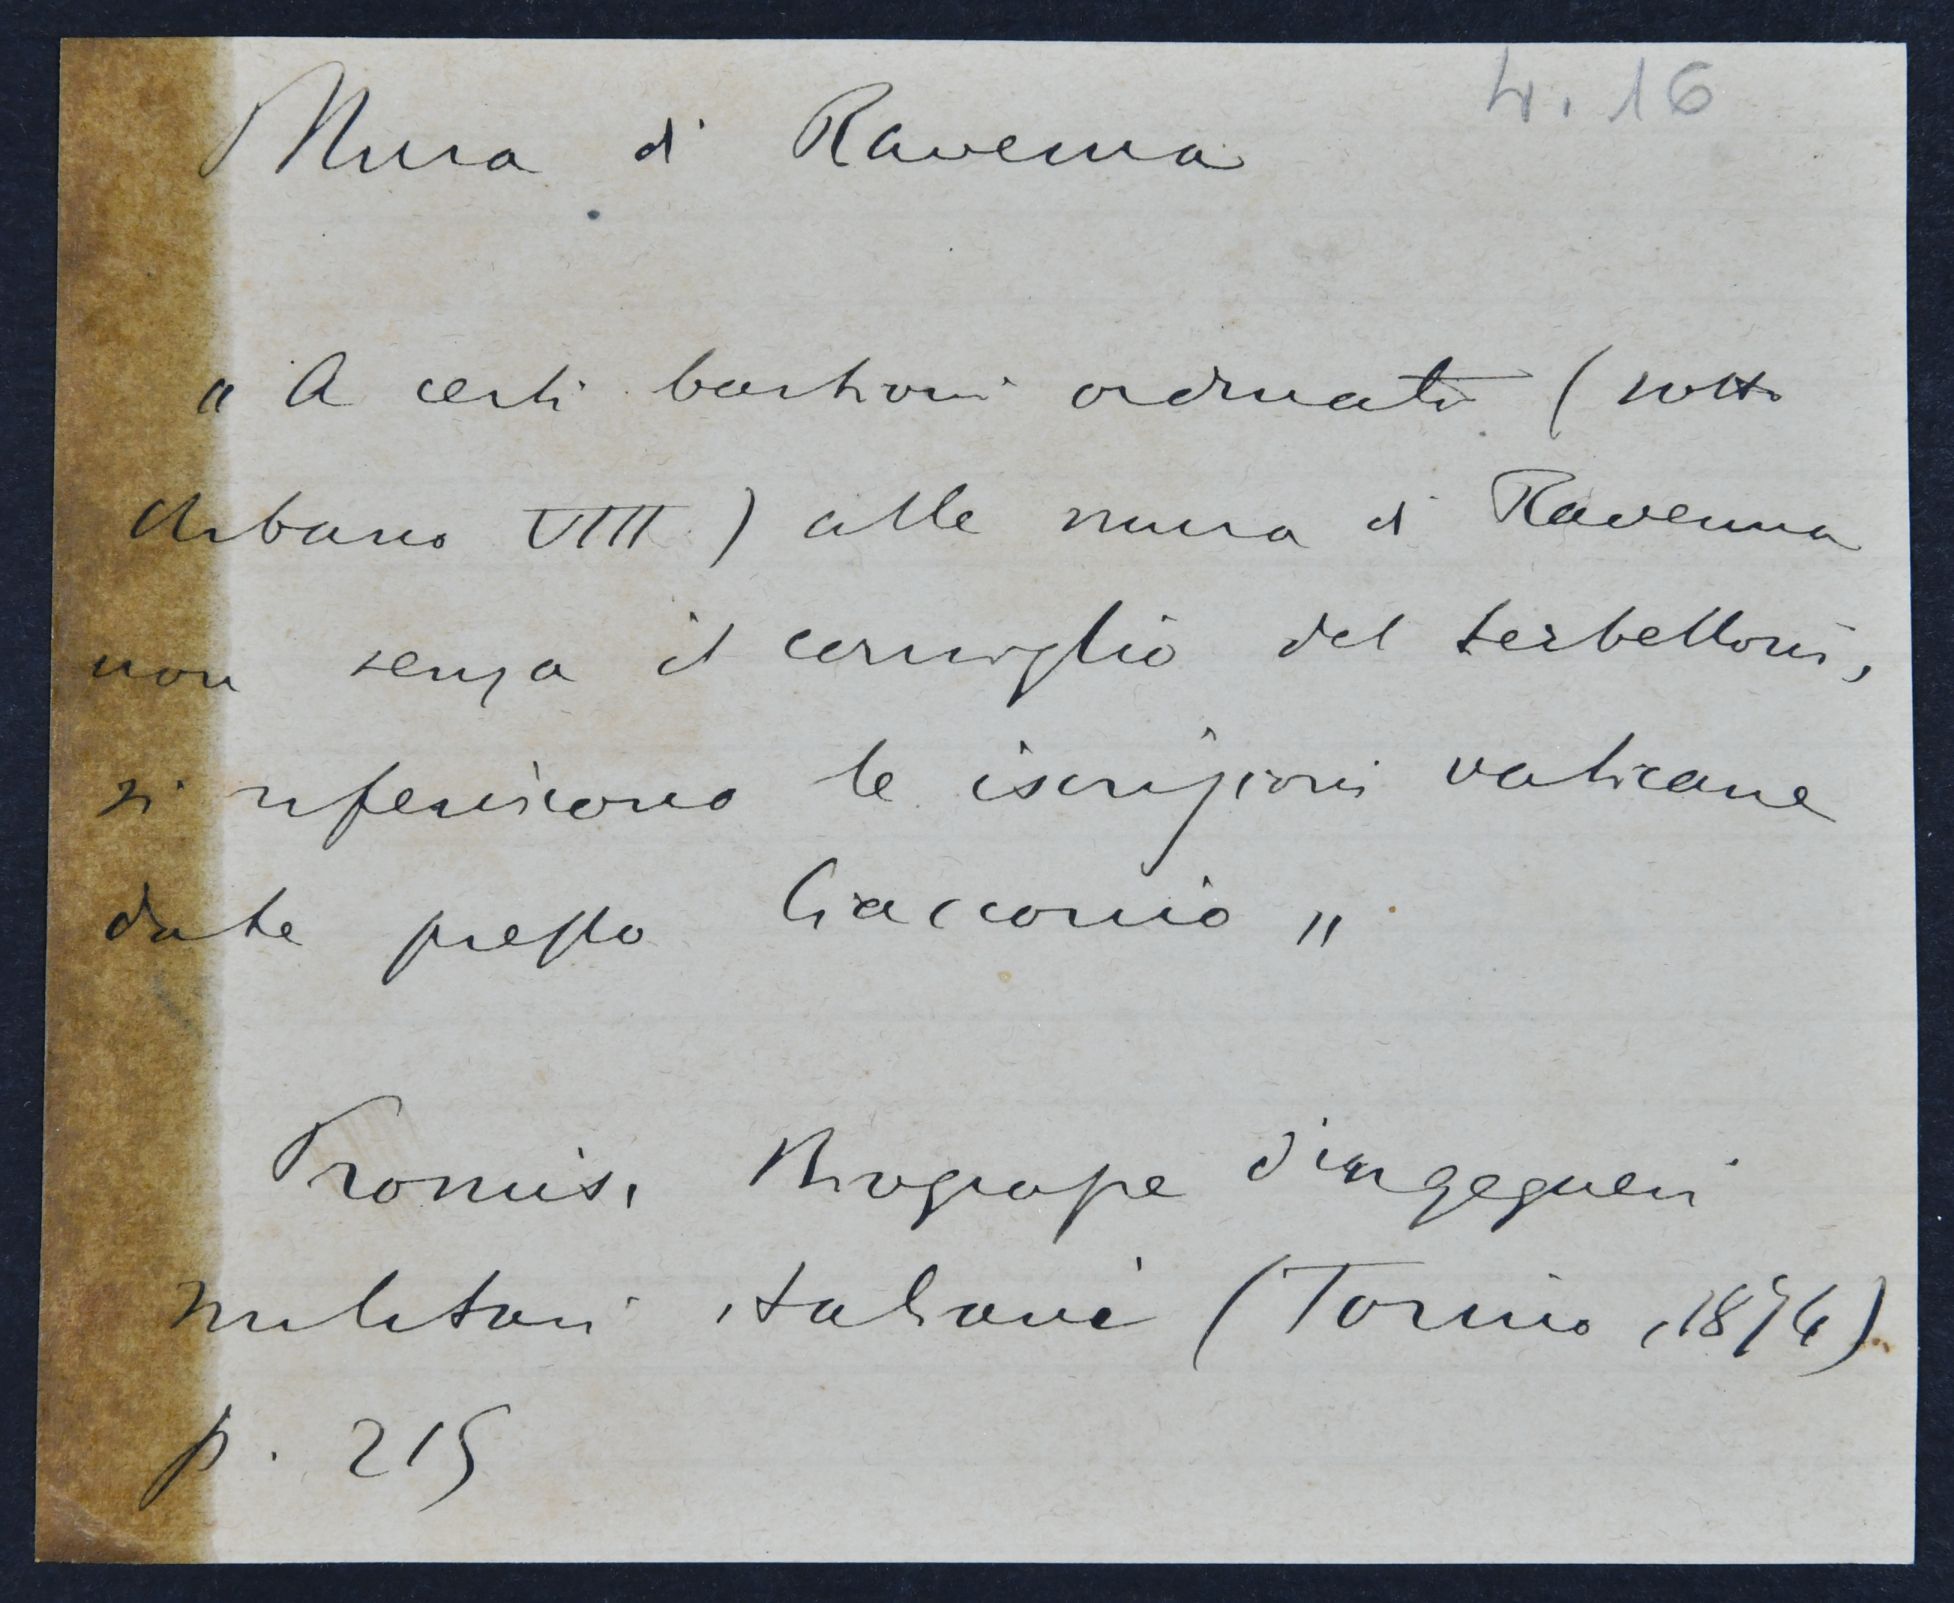 4. 16
Mura di Ravenna
" A certi bastioni ordinati (sotto
Urbano VIII) alle mura di Ravenna
non senza il consiglio del Serbelloni,
si riferiscono le iscrizioni vaticane
date presso Ciacconio "
Promis, Biografie d'ingegneri
militari italiani (Torino, 1874)
p. 215